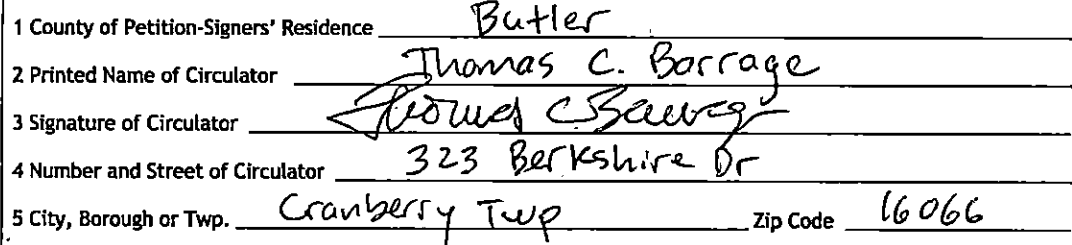 1 County of Petition-Signers' Residence Butler
2 Printed Name of Circulator Thomas C. Barrage
3 Signature of Circulator Thomas C Barrage
4 Number and Street of Circulator 323 Berkshire Dr
5 City, Borough or Twp. Cranberry Twp Zip Code 16066